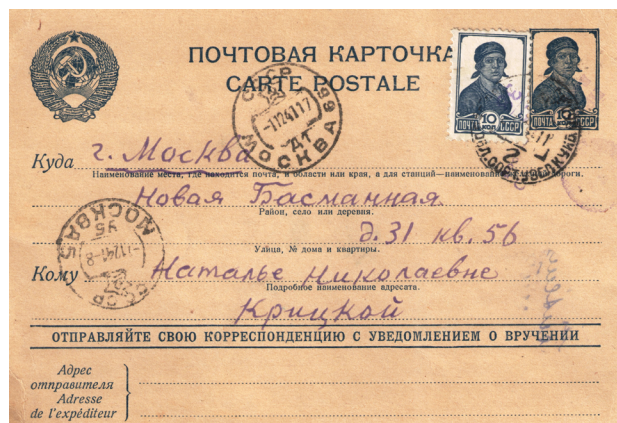 ПОЧТОВАЯ КАРТОЧКА
CARTE POSTALE
СССР
МОСКВА 99
-11241 17
ПОЧТА 10 СССР
ПОЧТА 10 СССР
Куда г. Москва
Наименование места, где находится почта, и области или края, а для станций—наименование дороги.
Новая Басманная
Район, село или деревня.
д. 31 кв. 56
Улица, № дома и квартиры.
МОСКВА 5
СССР
-11241-8
Кому Наталье Николаевне
Подробное наименование адресата.
Крицкой
ОТПРАВЛЯЙТЕ СВОЮ КОРРЕСПОНДЕНЦИЮ С УВЕДОМЛЕНИЕМ О ВРУЧЕНИИ
Адрес
отправителя
Adresse
de l'expéditeur